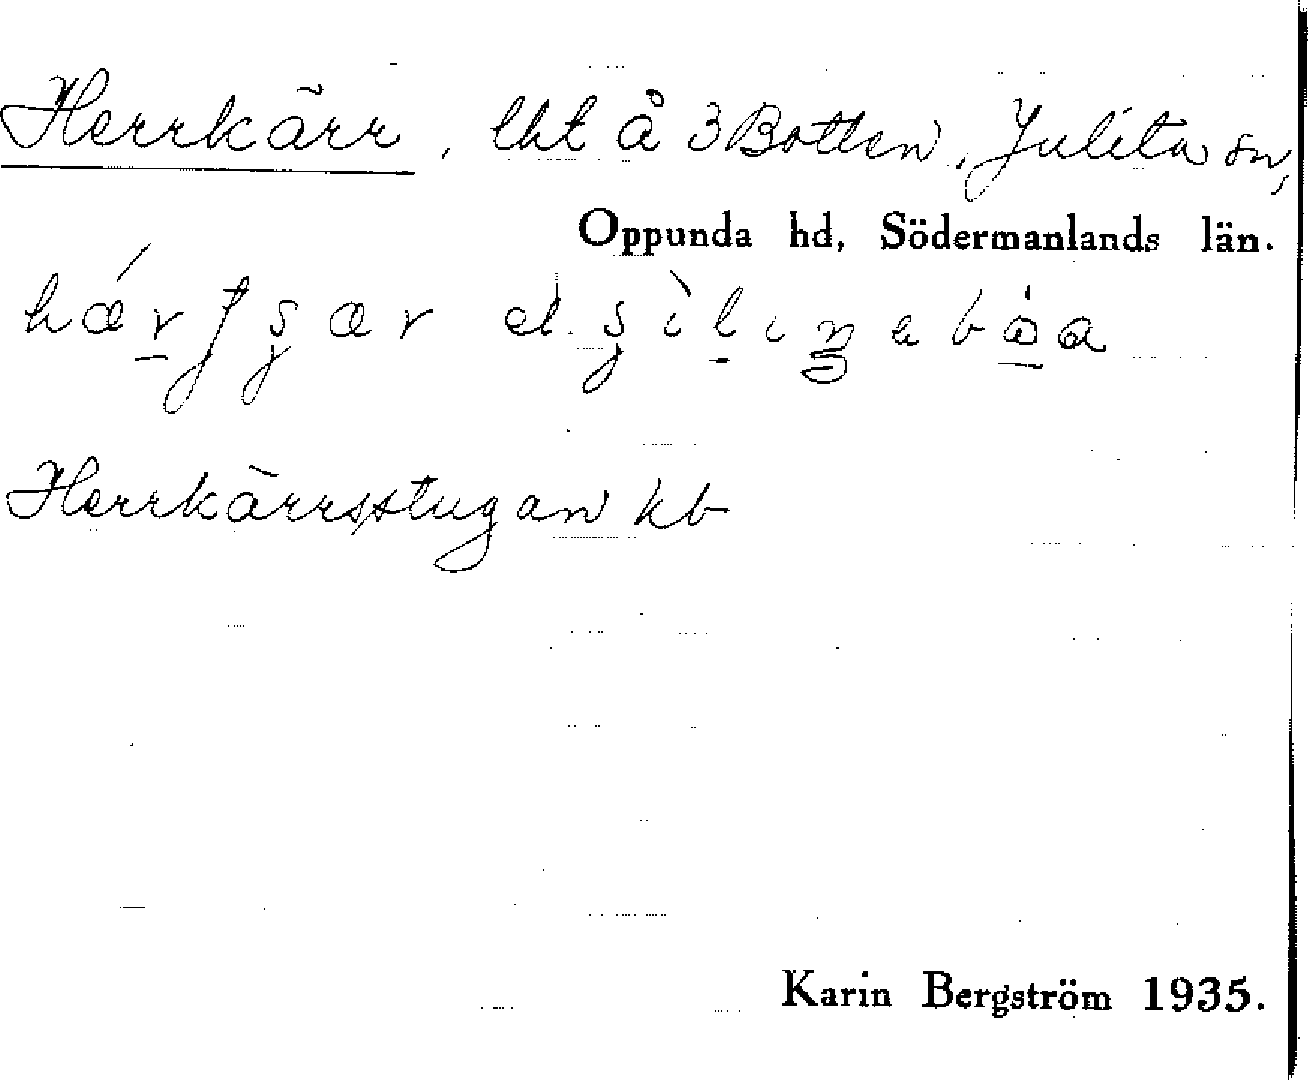 Herrkärr, lht å 3 Botten, Julita sn,
Oppunda hd, Södermanlands län.
Herrkärrsstugan kb
Karin Bergström 1935.